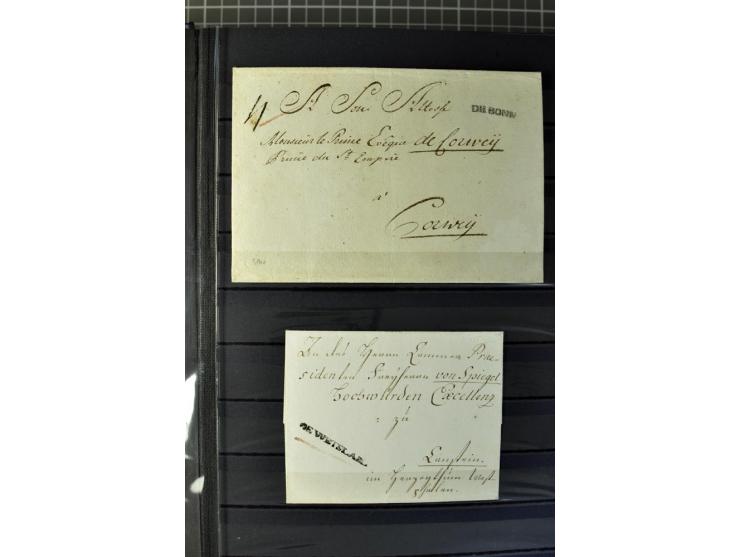 A Son Altesse
DE BONN
Monsieur le Prince Evêque de Corweÿ
Prince du St. Empire
à
Corweÿ
Herrn Cammer Præ-
sidenten Freyherrn von Spiegel
Hochwürden Excellenz
zu
DE WETSLAR
im Herzogthum West-
phalen.